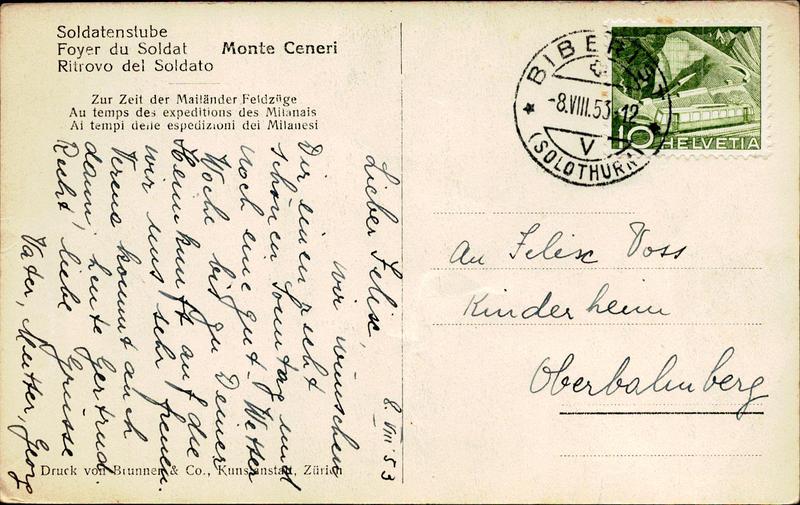 Soldatenstube
Foyer du Soldat Monte Ceneri
Ritrovo del Soldato
Zur Zeit der Mailänder Feldzüge
Au temps des expeditions des Milanais
Ai tempi delle espedizioni dei Milanesi
8. VIII 53
Lieber Felix,
wir wünschen
Dir einen recht
schönen Sonntag und
noch eine gut-Wetter
Woche bis zu Deiner
Heimkunft auf die
wir uns sehr freuen.
Verena kommt auch
dann, heute Gertrud.
Recht liebe Grüsse
Vater, Mutter, Georg
Druck von Brunner & Co., Kunstanstalt, Zürich
BIBERIST
-8.VIII.53-12
V
(SOLOTHURN)
10 HELVETIA
An Felix Voss
Kinderheim
Oberbalmberg